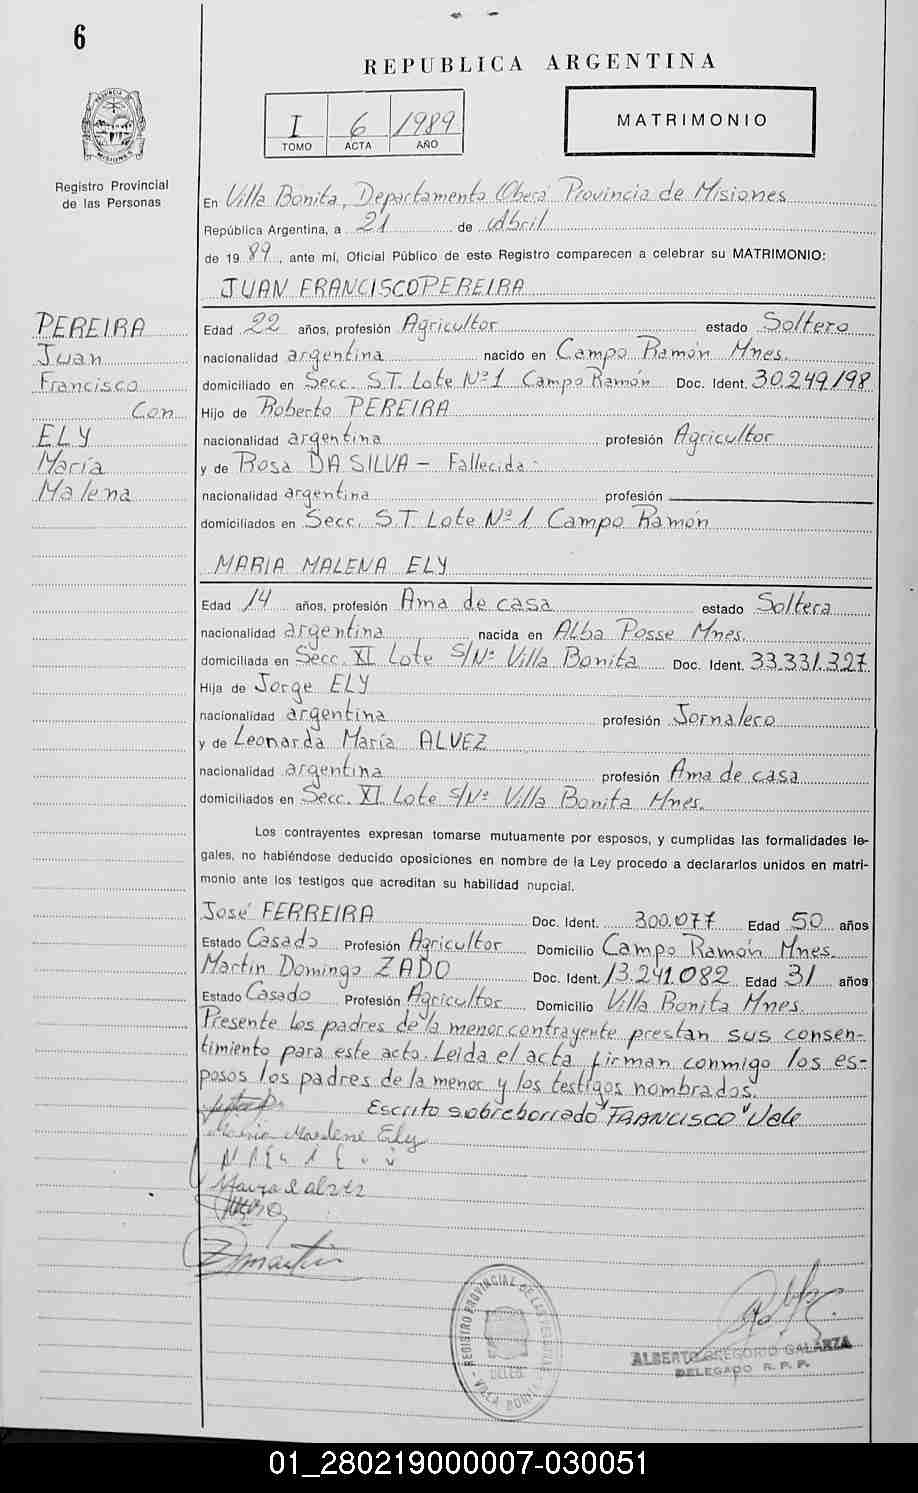 6
REPUBLICA ARGENTINA
I 6 1989
TOMO ACTA AÑO
MATRIMONIO
PROVINCIA DE
MISIONES
Registro Provincial
de las Personas
En Villa Bonita, Departamento Oberá Provincia de Misiones
República Argentina, a 21 de Abril
de 19 89, ante mí, Oficial Público de este Registro comparecen a celebrar su MATRIMONIO:
JUAN FRANCISCO PEREIRA
PEREIRA
Juan
Francisco
Con
ELY
María
Malena
Edad 22 años, profesión Agricultor estado Soltero
nacionalidad argentina nacido en Campo Ramón Mnes.
domiciliado en Secc. S.T. Lote Nº 1 Campo Ramón Doc. Ident. 30.249.198
Hijo de Roberto PEREIRA
nacionalidad argentina profesión Agricultor
y de Rosa DA SILVA - Fallecida -
nacionalidad argentina profesión
domiciliados en Secc. S.T. Lote Nº 1 Campo Ramón
MARIA MALENA ELY
Edad 14 años, profesión Ama de casa estado Soltera
nacionalidad argentina nacida en Alba Posse Mnes.
domiciliada en Secc. XI Lote S/Nº Villa Bonita Doc. Ident. 33.331.327
Hija de Jorge ELY
nacionalidad argentina profesión Jornalero
y de Leonarda María ALVEZ
nacionalidad argentina profesión Ama de casa
domiciliados en Secc. XI Lote S/Nº Villa Bonita Mnes.
Los contrayentes expresan tomarse mutuamente por esposos, y cumplidas las formalidades le-
gales, no habiéndose deducido oposiciones en nombre de la Ley procedo a declararlos unidos en matri-
monio ante los testigos que acreditan su habilidad nupcial.
José FERREIRA Doc. Ident. 300.077 Edad 50 años
Estado Casado Profesión Agricultor Domicilio Campo Ramón Mnes.
Martin Domingo ZADO Doc. Ident. 13.241.082 Edad 31 años
Estado Casado Profesión Agricultor Domicilio Villa Bonita Mnes.
Presente los padres de la menor contrayente prestan sus consen-
timiento para este acto. Leida el acta firman conmigo los es-
posos los padres de la menor y los testigos nombrados.
Escrito sobreborrado "FRANCISCO" Vale
Maria Marlene Ely
Martin
REGISTRO PROVINCIAL DE LAS PERSONAS
DELEG.
VILLA BONITA
ALBERTO GREGORIO GALARZA
DELEGADO R. P. P.
01_280219000007-030051